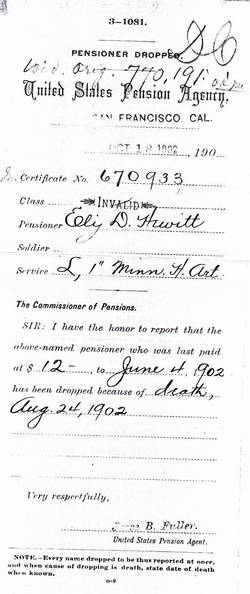 3-1081.
PENSIONER DROPPED.
Wid. Orig. 740,191.
United States Pension Agency,
SAN FRANCISCO, CAL.
OCT 18 1902, 190
Certificate No. 670933
Class INVALID
Pensioner Eliz D. Hewitt
Soldier
Service L, 1" Minn. H. Art.
The Commissioner of Pensions.
SIR: I have the honor to report that the
above-named pensioner who was last paid
at $ 12-, to June 4, 1902
has been dropped because of death,
Aug. 24, 1902
Very respectfully,
B. Fuller.
United States Pension Agent.
NOTE.—Every name dropped to be thus reported at once,
and when cause of dropping is death, state date of death
when known.
6-9